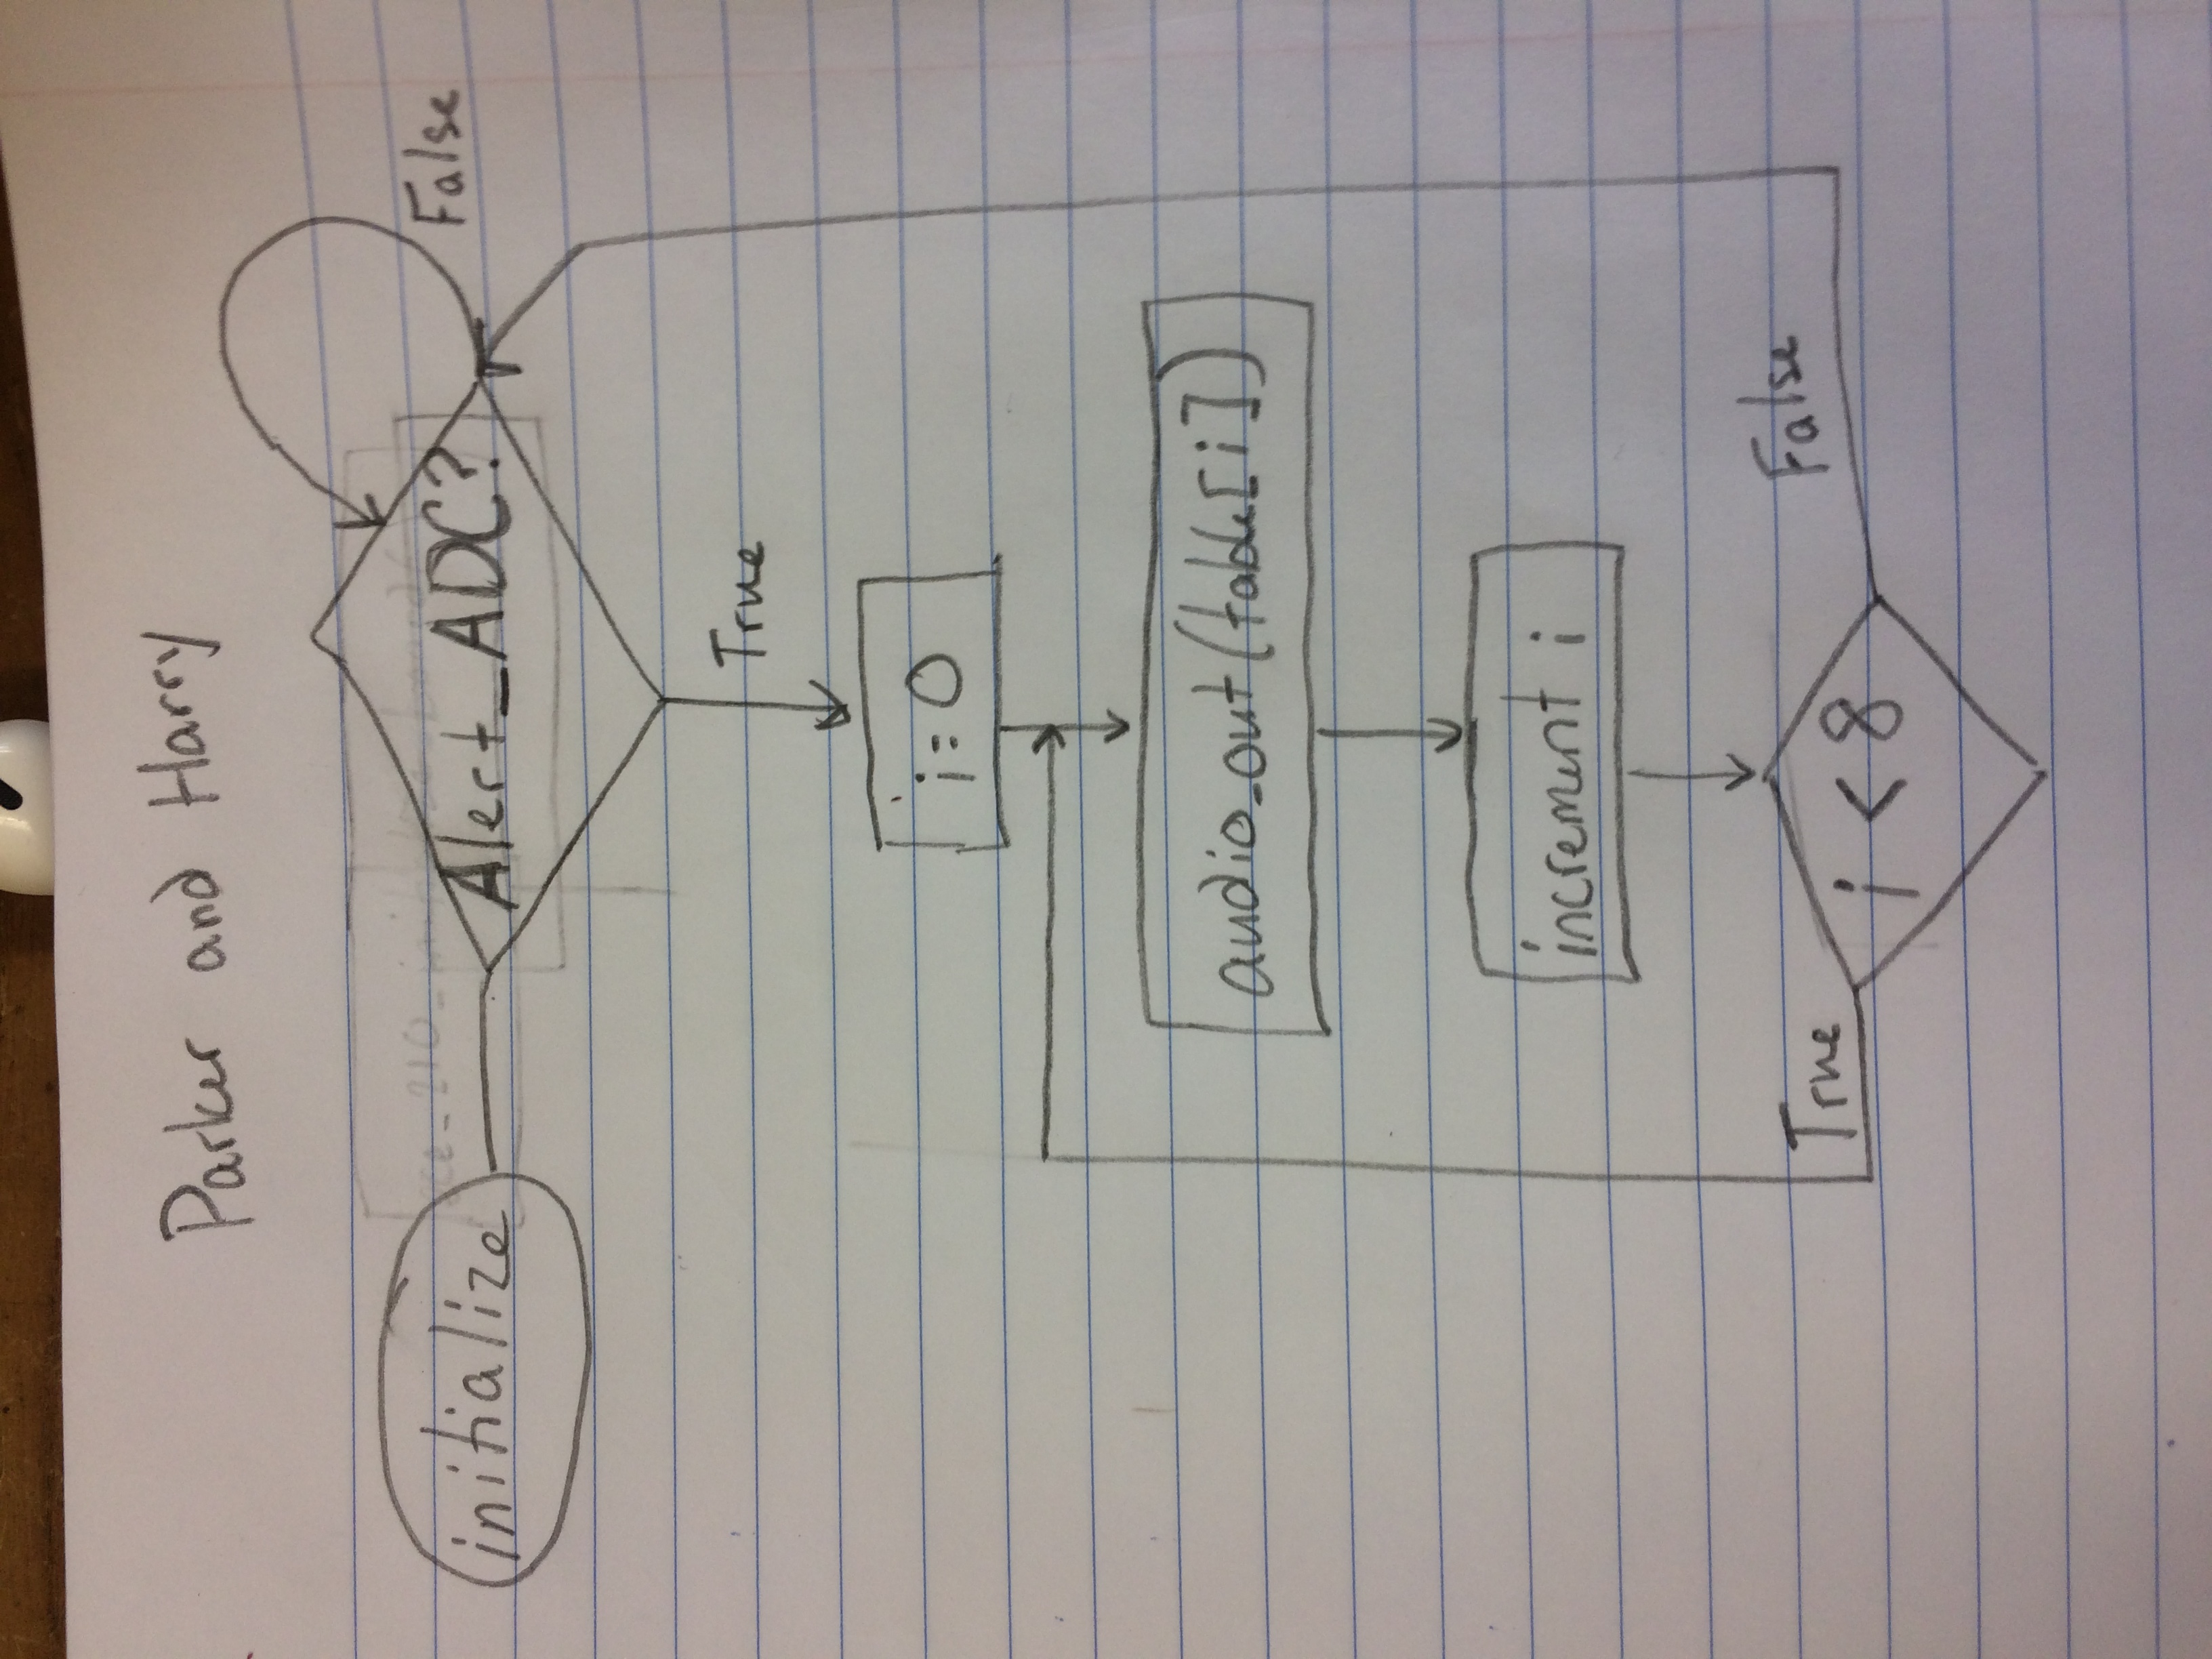 Parker and Harry
initialize
Alert_ADC?
False
True
i=0
audio_out(table[i])
increment i
True
i < 8
False